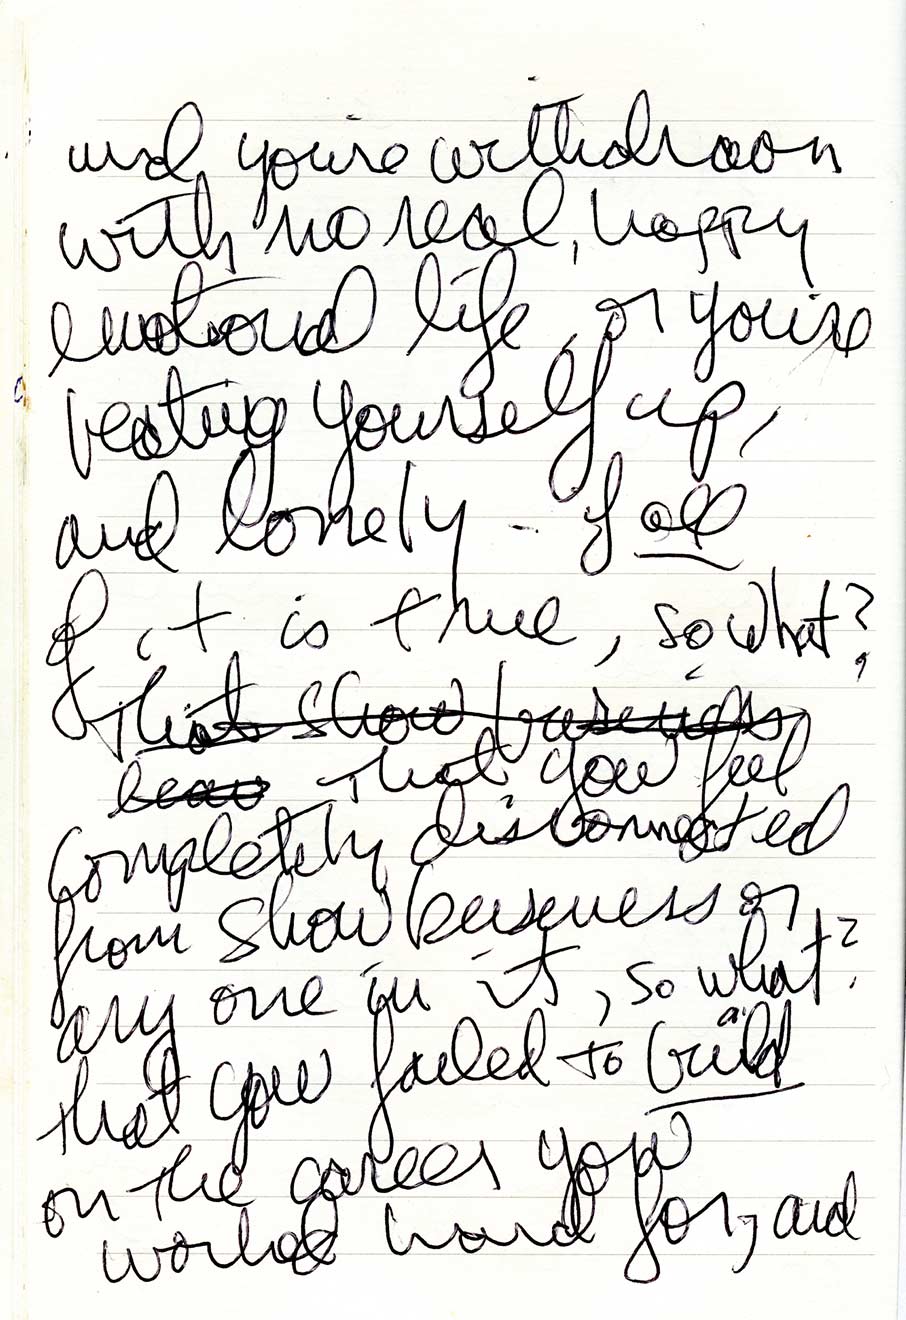 and you're withdrawn
with no real, happy
emotional life, or you're
beating yourself up,
and lonely - if all
of it is true, so what?
That show business
beau that you feel
completely disconnected
from show business or
any one in it, so what?
that you failed to build
on the career you
worked hard for, and